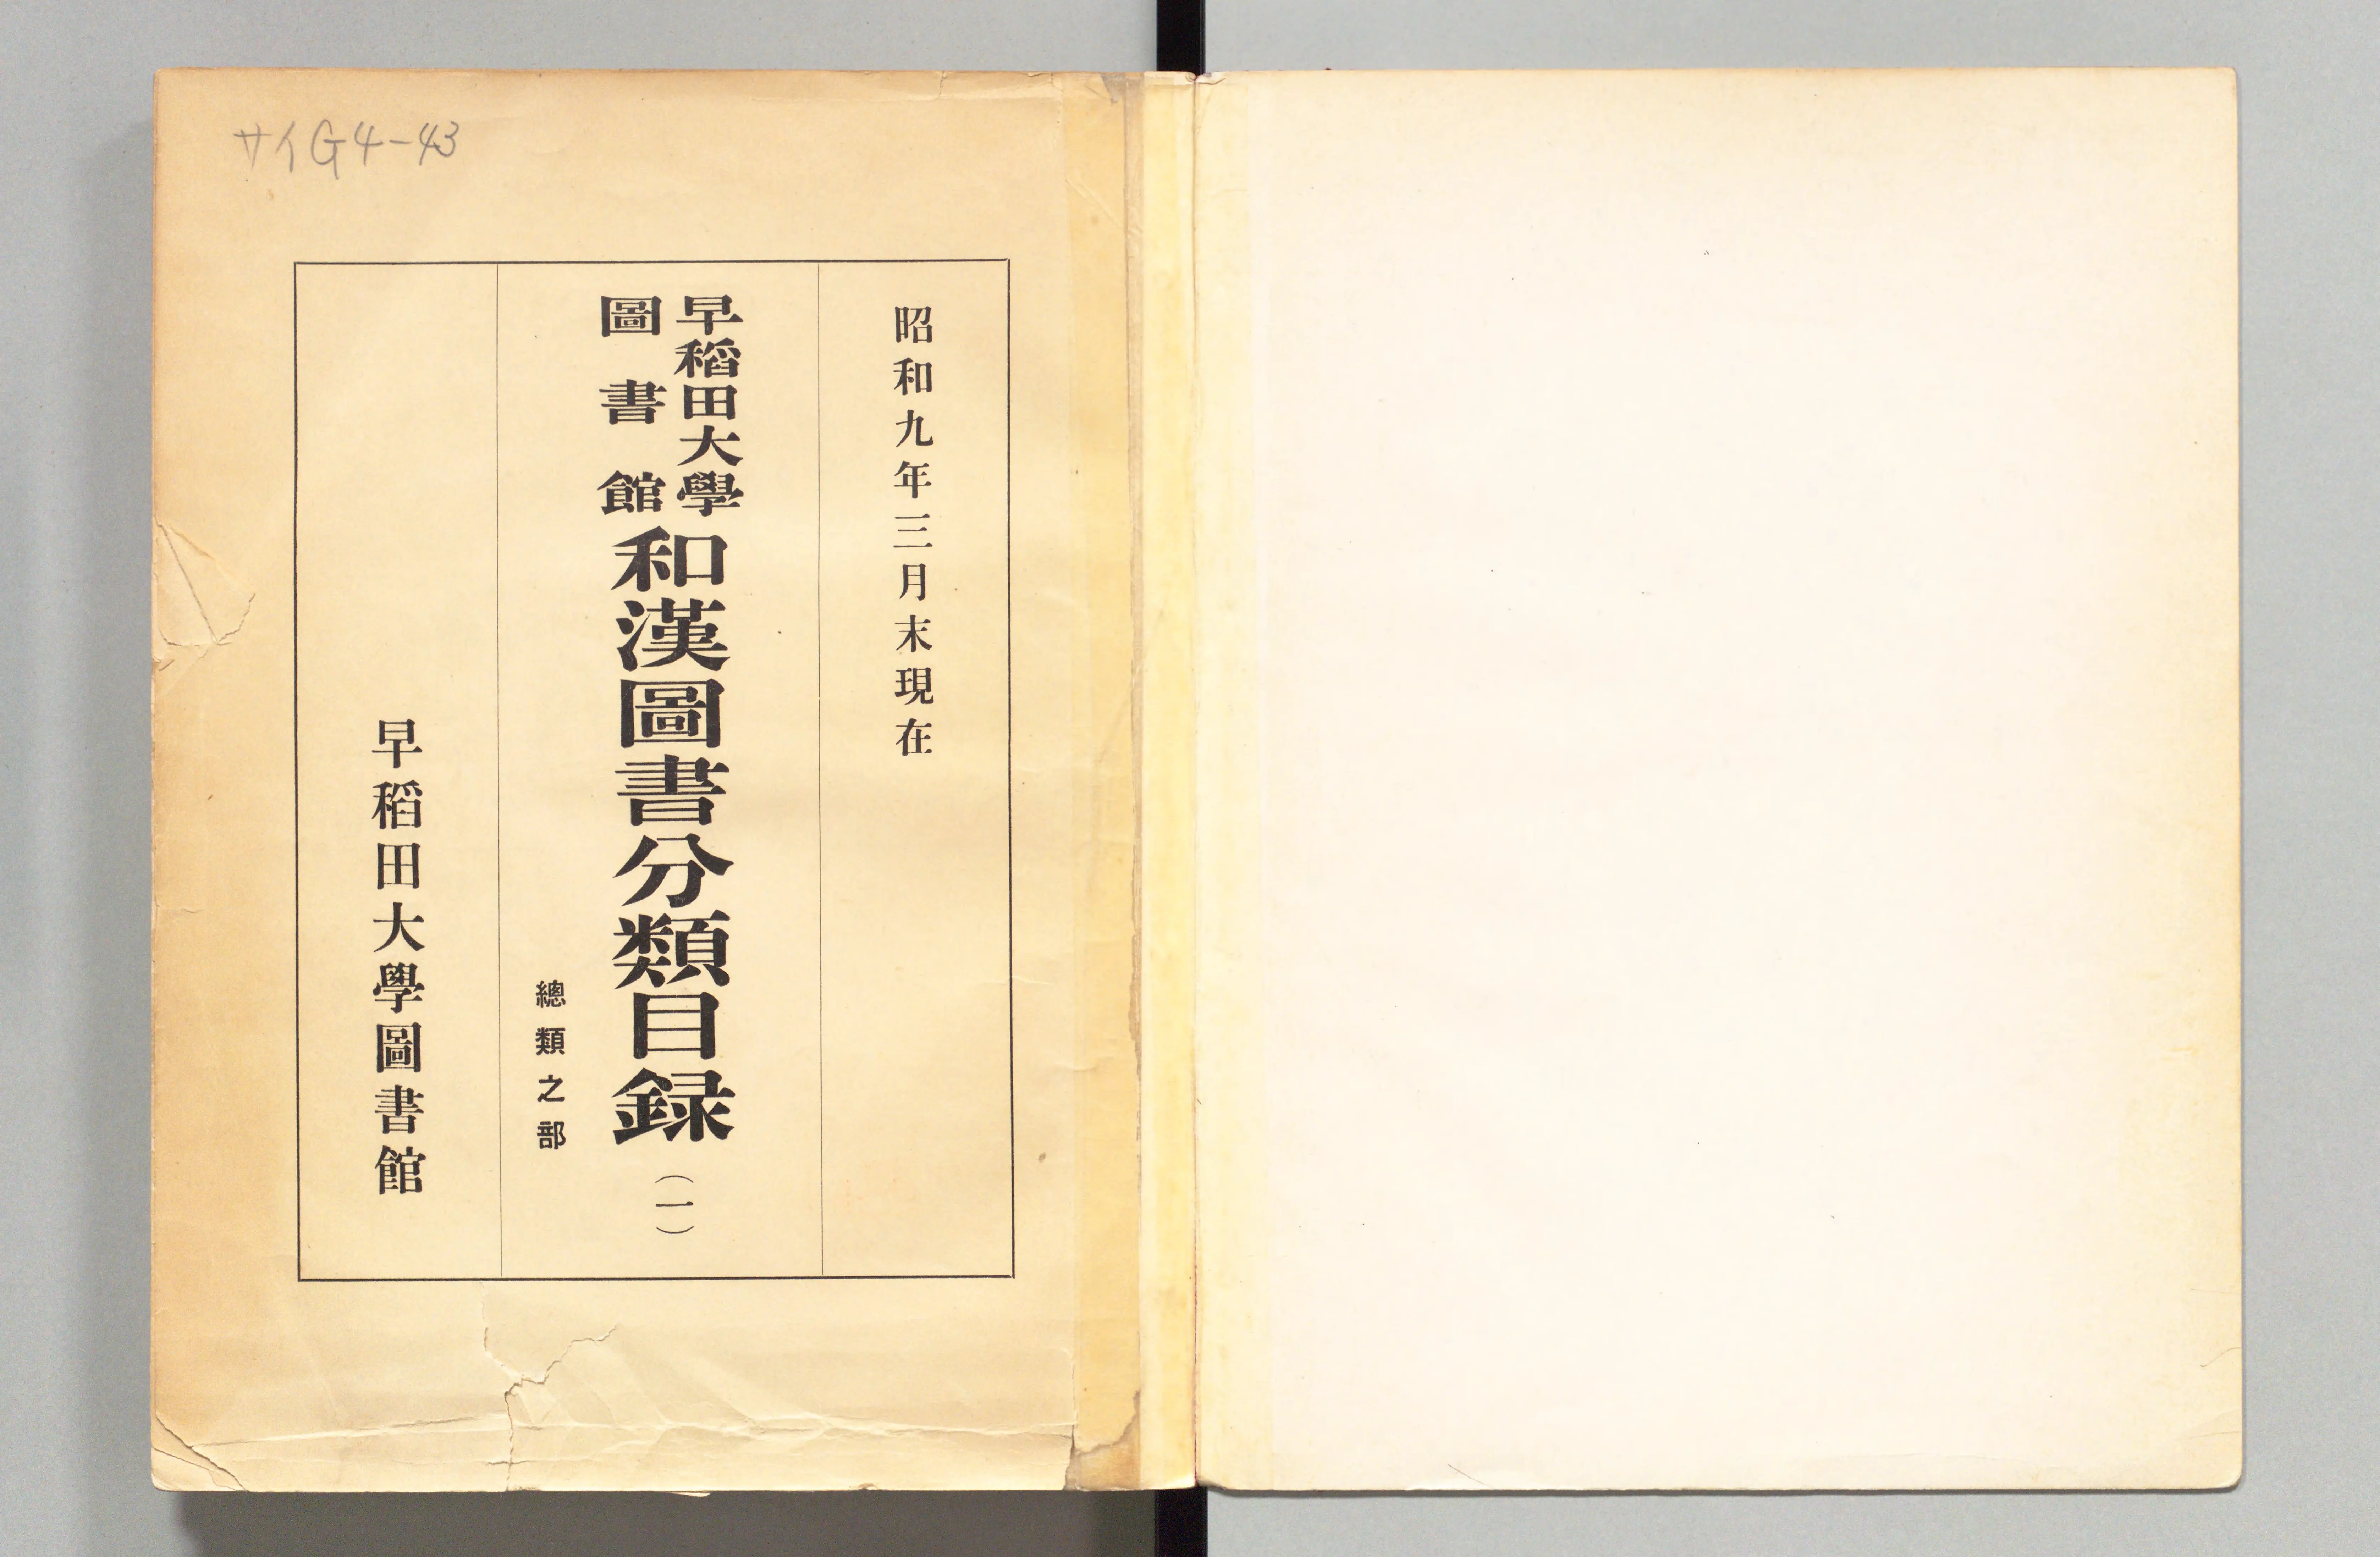 サイG4-43
昭和九年三月末現在
早稻田大學
圖書館
和漢圖書分類目録(一)
總類之部
早稻田大學圖書館